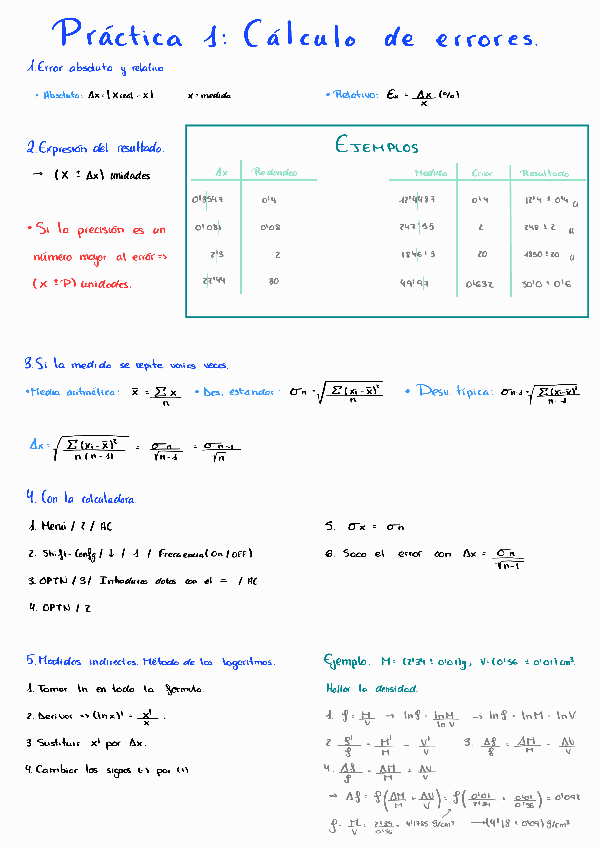 Práctica 1: Cálculo de errores.
1. Error absoluto y relativo
• Absoluto: Δx = |Xreal - x|   x = medida   • Relativo: Ex = Δx/x · (%)
2. Expresión del resultado.
→ (X ± Δx) unidades
• Si la precisión es un
número mayor al error ⇒
(x ± P) unidades.
EJEMPLOS
Δx   Redondeo   Medida   Error   Resultado
0'3547   0'4   12'4487   0'4   12'4 ± 0'4 u
0'081   0'08   247'35   2   248 ± 2 u
2'3   2   1846'3   20   1850 ± 20 u
27'44   30   49'97   0'632   50'0 ± 0'6
3. Si la medida se repite varias veces.
• Media aritmética: x̄ = Σx/n   • Des. estandar: σn = √(Σ(xi - x̄)²/n)   • Desv. típica: σn-1 = √(Σ(xi - x̄)²/n-1)
Δx = √(Σ(xi - x̄)²/n(n-1)) = σn/√n-1 = σn-1/√n
4. Con la calculadora.
1. Menú / 2 / AC
2. Shift-Config / ↓ / 1 / Frecuencia (On/OFF)
3. OPTN / 3 / Introduces datos con el = / AC
4. OPTN / 2
5. σx = σn
6. Saco el error con Δx = σn/√n-1
5. Medidas indirectas. Método de los logaritmos.
1. Tomar ln en toda la fórmula.
2. Derivar ⇒ (ln x)' = x'/x.
3. Sustituir x' por Δx.
4. Cambiar los signos (-) por (+)
Ejemplo. M = (2'34 ± 0'01)g, V = (0'56 ± 0'01)cm³.
Hallar la densidad.
1. ρ = M/V → ln ρ = ln M/ln V → ln ρ = ln M - ln V
2. ρ'/ρ = M'/M - V'/V   3. Δρ/ρ = ΔM/M - ΔV/V
4. Δρ/ρ = ΔM/M + ΔV/V
→ Δρ = ρ(ΔM/M + ΔV/V) = ρ(0'01/2'34 + 0'01/0'56) = 0'092
ρ = M/V = 2'34/0'56 = 4'1785 g/cm³ → (4'18 ± 0'09) g/cm³